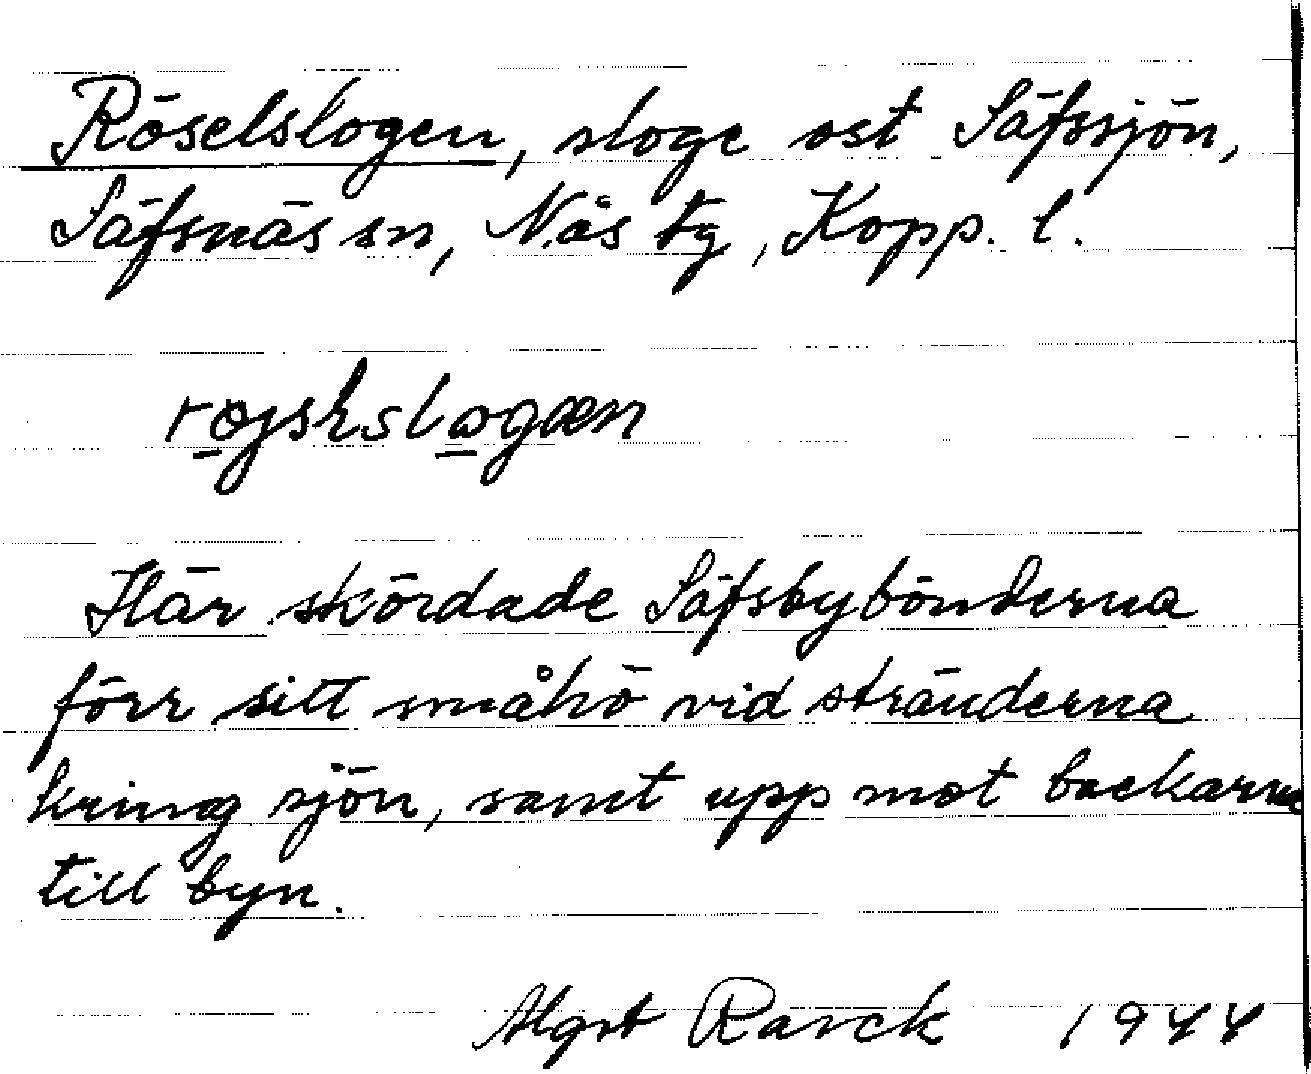 Röselslogen, sloge ost Säfssjön,
Säfsnäs sn, Nås tg, Kopp. l.
Här skördade Säfsbybönderna
förr sitt småhö vid stränderna
kring sjön, samt upp mot backarna
till byn.
Algot Rarck 1944